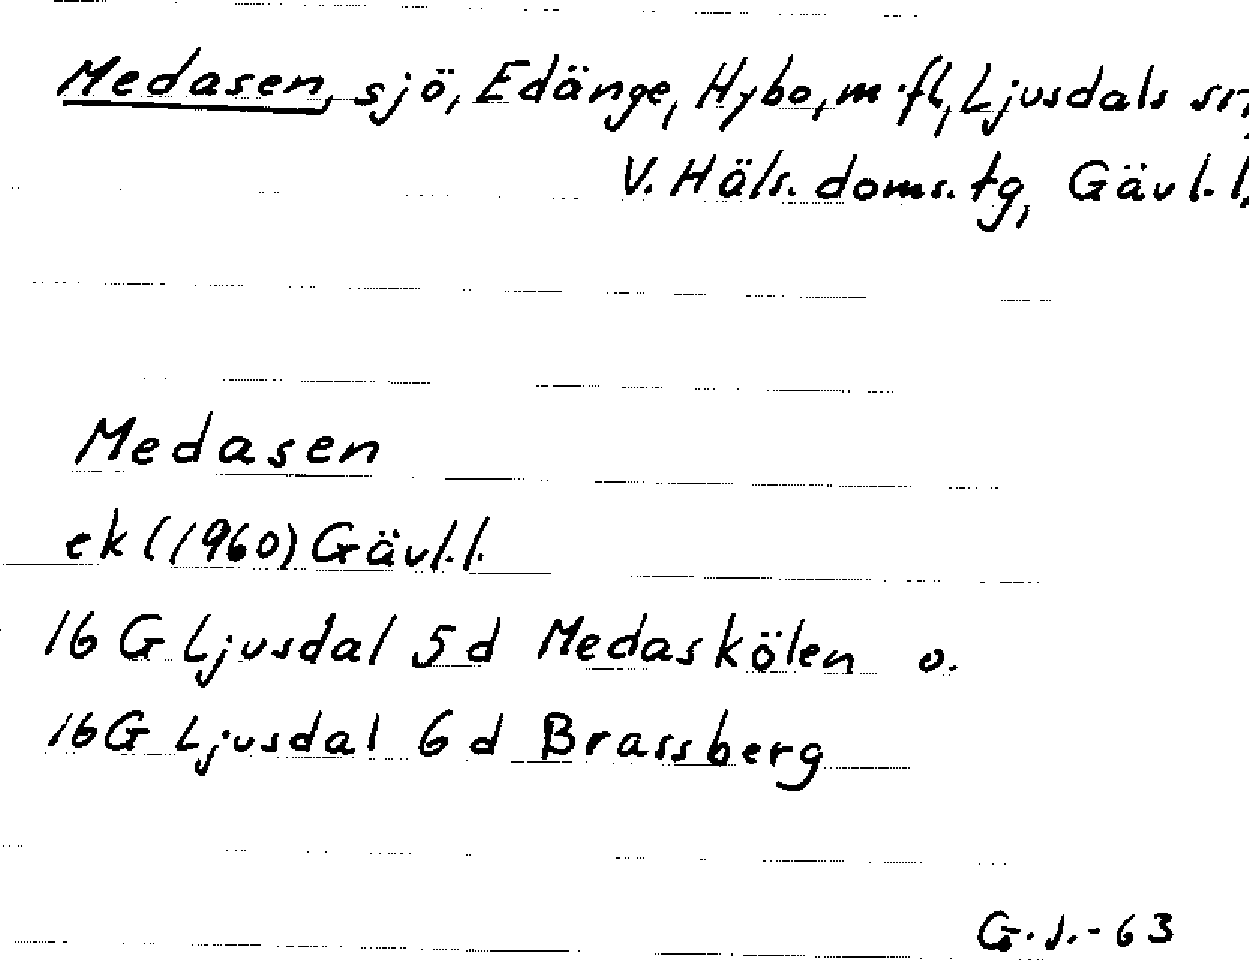 Medasen, sjö, Edänge, Hybo, m.fl, Ljusdals sn,
V. Häls. doms. tg, Gävl. l,
Medasen
ek (1960) Gävl. l.
16 G Ljusdal 5 d Medaskölen o.
16 G Ljusdal 6 d Brassberg
G. J. - 63